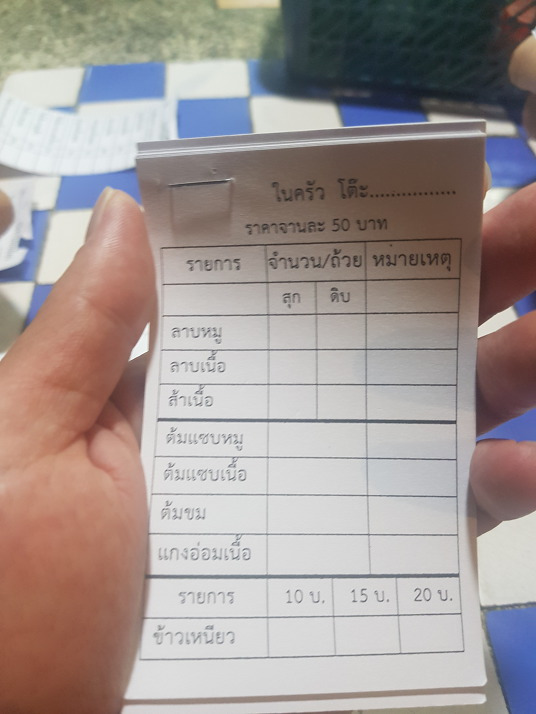 ในครัว โต๊ะ................
ราคาจานละ 50 บาท
รายการ จำนวน/ถ้วย หมายเหตุ
สุก ดิบ
ลาบหมู
ลาบเนื้อ
ส้าเนื้อ
ต้มแซบหมู
ต้มแซบเนื้อ
ต้มขม
แกงอ่อมเนื้อ
รายการ 10 บ. 15 บ. 20 บ.
ข้าวเหนียว